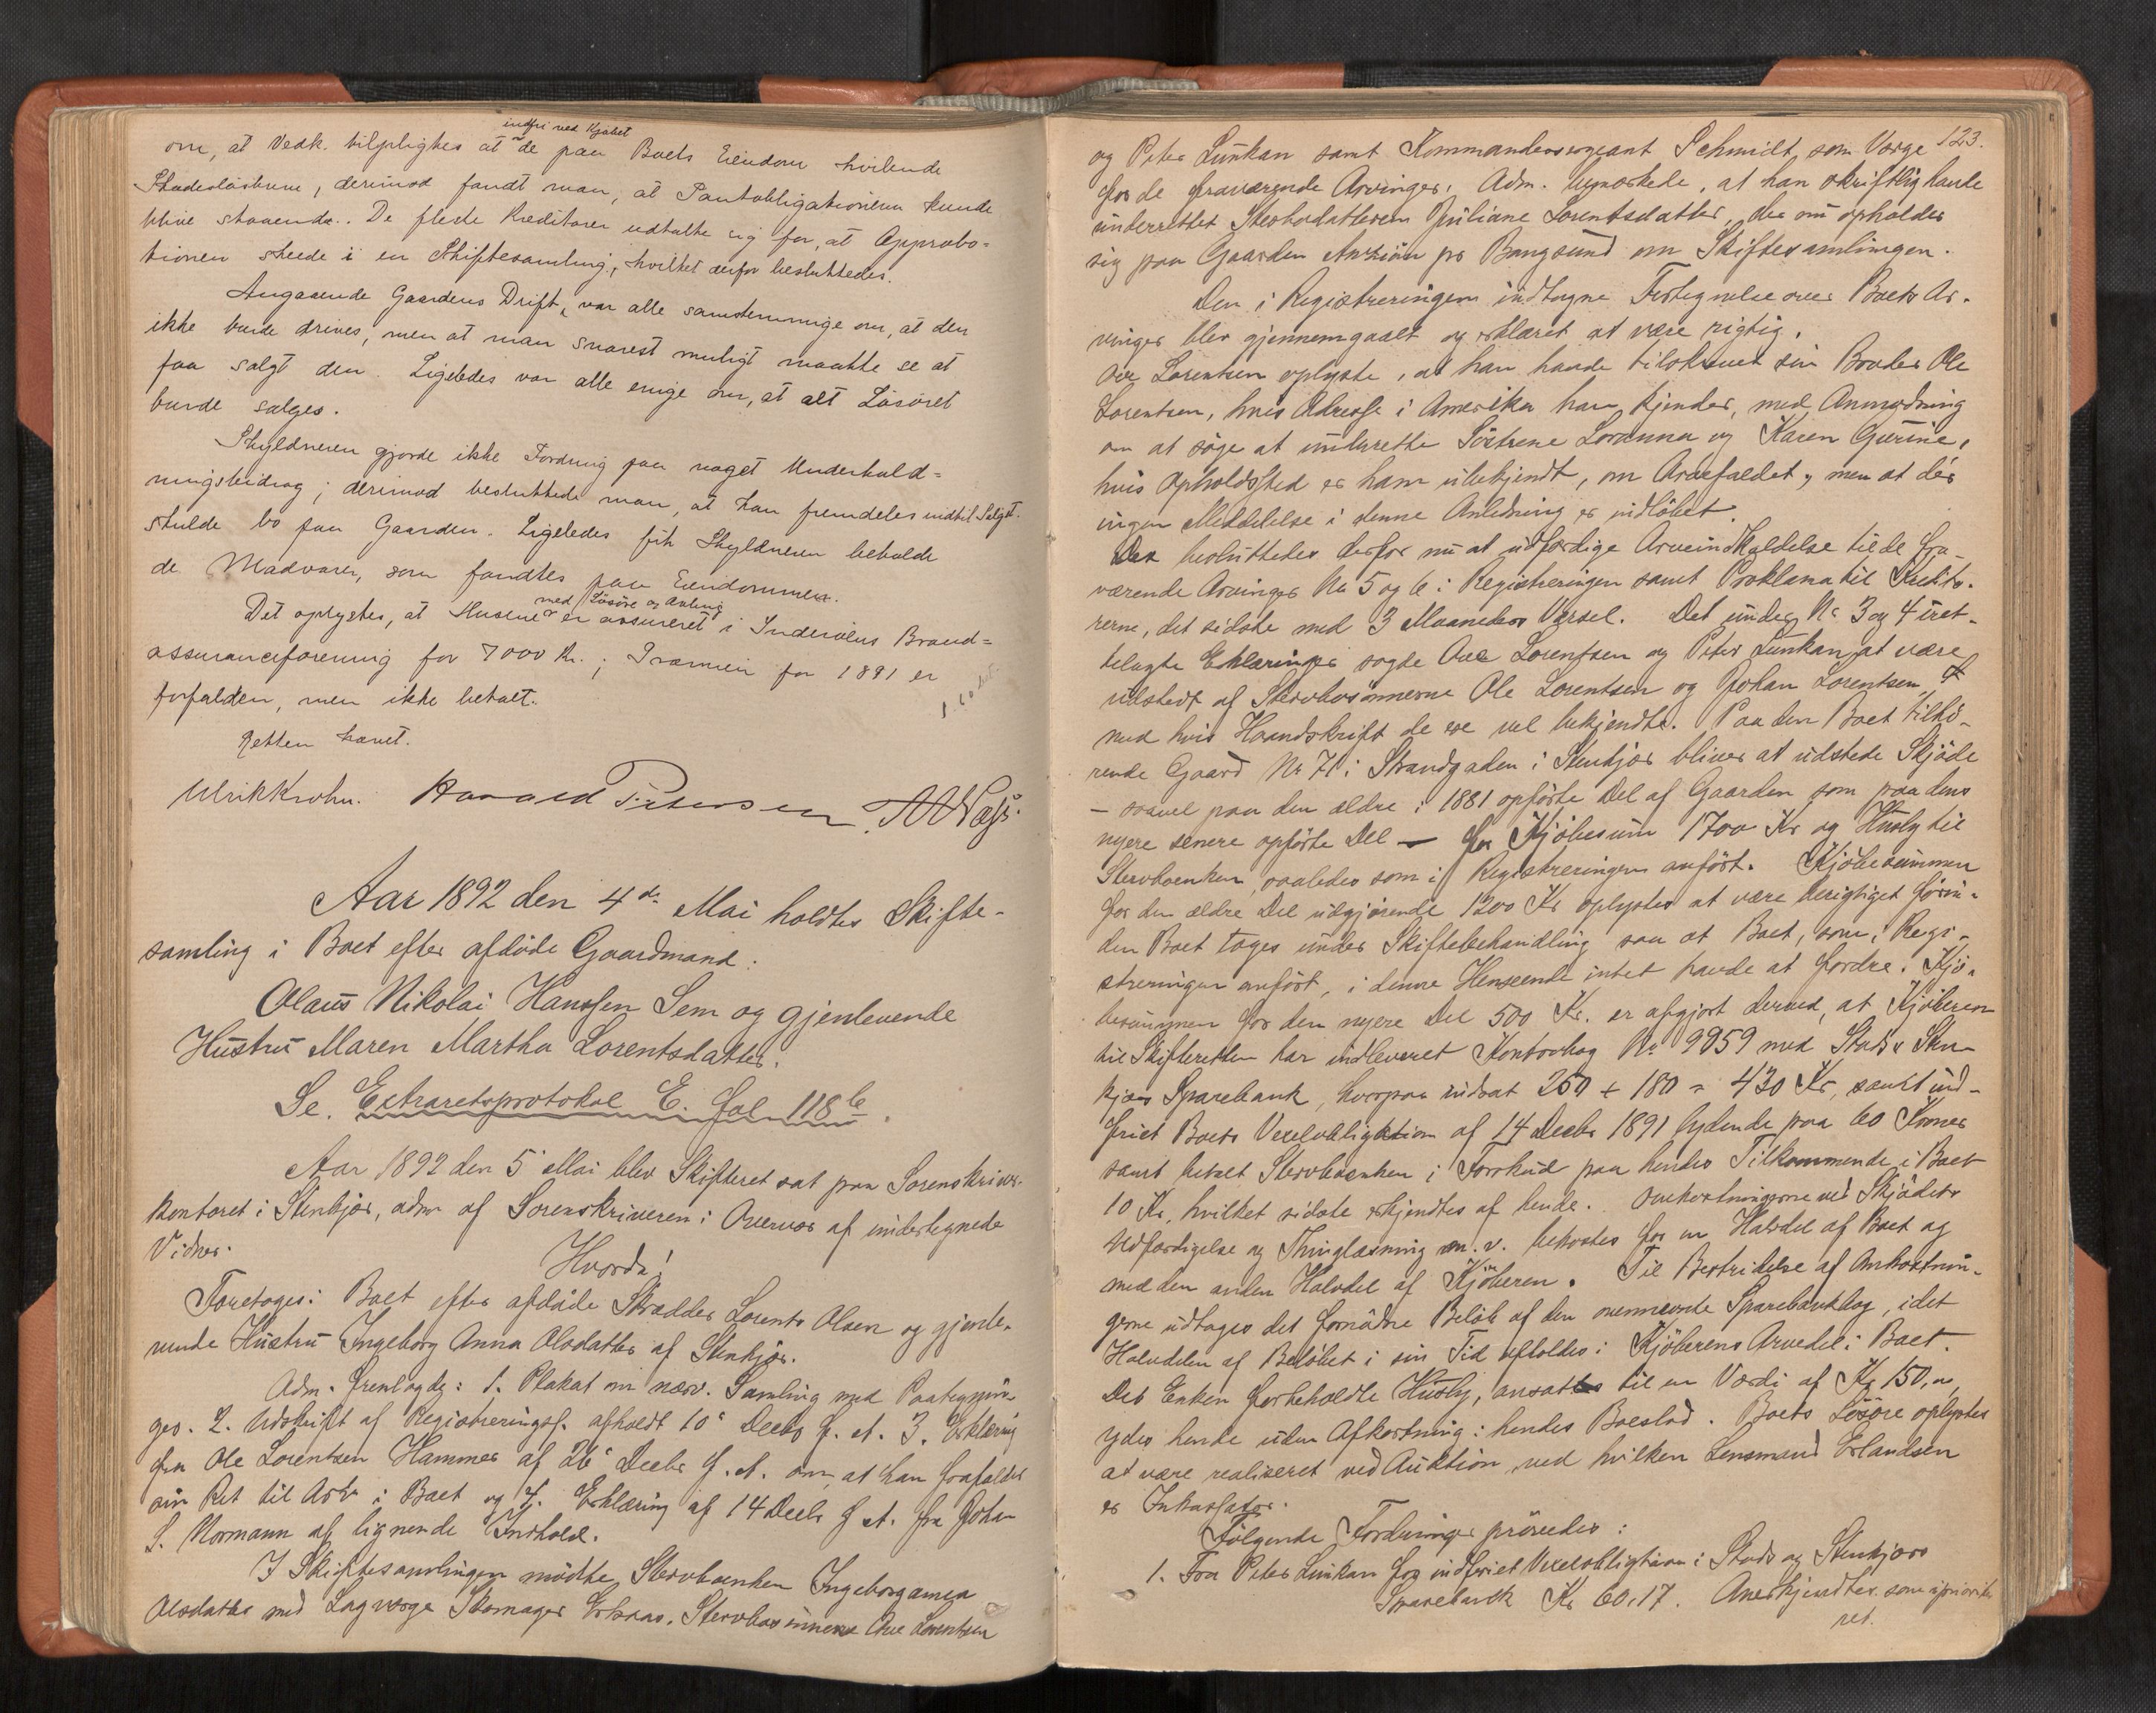 indfri ved Kjøbet
om, at Vedk. tilpligtes at de paa Boets Eiendom hvilende
blive staaende. De fleste Kreditorer udtalte sig for, at Approba=
tionen skeede i en Skiftesamling, hvilket derfor besluttedes.
Angaaende Gaardens Drift, var alle samstemmige om, at den
ikke burde drives, men at man snarest muligt maatte se at
faa solgt den. Ligeledes var alle enige om, at alt Løsøret
burde sælges.
Skyldneren gjorde ikke Fordring paa noget Underhold=
ningsbidrag; derimod besluttede man, at han fremdeles indtil Salget
skulde bo paa Gaarden. Ligeledes fik Skyldneren beholde
de Madvarer, som fandtes paa Eiendommen.
med Løsøre og Avling
Det oplystes, at Husene er assureret i Inderøens Brand=
assuranceforening for 7000 Kr.; Præmien for 1891 er
forfalden, men ikke betalt.
Retten hævet.
Ulrik Krohn. Harald Petersen.
Aar 1892 den 4de Mai holdtes Skifte-
samling i Boet efter afdøde Gaardmand
Olaus Nikolai Hanssen Sem og gjenlevende
Hustru Maren Martha Lorentsdatter.
Se. Extraretsprotokol E. fol 118b.
Aar 1892 den 5' Mai blev Skifteret sat paa Sorenskriver-
kontoret i Stenkjær, adm af Sorenskriveren i Overvær af undertegnede
Vidner.
Hvorda!
Foretoges: Boet efter afdøde Skrædder Lorents Olsen og gjenle-
vende Hustru Ingeborg Anna Olsdatter af Stenkjær.
Adm. fremlagde: 1. Plakat om nærv. Samling med Paategnin-
ger. 2. Udskrift af Registreringsf. afholdt 10' Decbr f. A. 3. Erklæring
fra Ole Lorentsen Hammer af 26' Decbr f. A. om, at han frafalder
sin Ret til Arv i Boet og 4. Erklæring af 14 Decbr f A. fra Johan
L. Normann af lignende Indhold.
I Skiftesamlingen mødte Stervboenken Ingeborganna
Olsdatter med Lagværge Skomager Stervbosønnerne Ove Lorentsen
123.
og Peter Lunkan samt Kommandersergeant Schmidt som Værge
for de fraværende Arvinger. Adm. bemærkede, at han skriftlig havde
underrettet Stervbodatteren Juliane Lorentsdatter, der nu opholder
sig paa Gaarden pr Bangsund om Skiftesamlingen.
Den i Registreringen indtagne Fortegnelse over Boets Ar-
vinger blev gjennemgaaet og erklæret at være rigtig.
Ove Lorentsen oplyste, at han havde tilskrevet sin Broder Ole
Lorentsen, hvis Adresse i Amerika han kjender, med Anmodning
om at søge at underrette Søstrene Lorenna og Karen Gurine,
hvis Opholdssted er ham ubekjendt, om Arvefaldet, men at der
ingen Meddelelse i denne Anledning er indløbet.
Det besluttedes derfor nu at udfærdige Arveindkaldelse til de fra-
værende Arvinger No 5 og 6 i Registreringen samt Proklama til Kredito-
rerne, det sidste med 3 Maaneders Varsel. Det under No 3 og 4 fret-
telagte Erklæringer sagde Ove Lorentsen og Peter Lunkan at være
udstedt af Stervbosønnerne Ole Lorentsen og Johan Lorentsen,
med hvis Haandskrift de ere vel bekjendte. Paa den Boet tilhø-
rende Gaard No 71 i Strandgaden i Stenkjær bliver at udstede Skjøde
– saavel paa den ældre i 1881 opførte Del af Gaarden som paa dens
nyere senere opførte Del – for Kjøbesum 1700 Kr og Husly til
Stervboenken, saaledes som i Registreringen anført. Kjøbesummen
for den ældre Del udgjørende 1200 Kr oplystes at være berigtiget førin-
den Boet toges under Skiftebehandling saa at Boet, som i Regi-
streringen anført, i denne Henseende intet havde at fordre. Kjø-
besummen for den nyere Del 500 Kr. er afgjort derved, at Kjøberen
til Skifteretten har indleveret Kontrabog No 9959 med Stods & Sten-
kjærs Sparebank, hvorpaa indsat 250 + 180 = 430 Kr, samt ind-
friet Boets Vexelobligation af 14 Decbr 1891 lydende paa 60 Kroner
samt betalt Stervboenken i Forskud paa hendes Tilkommende i Boet
10 Kr, hvilket sidste erkjendtes af hende. Omkostningerne ved Skjødets
Udfærdigelse og Thinglæsning m. v. bekostes for en Halvdel af Boet og
med den anden Halvdel af Kjøberen. Til Bestridelse af Omkostnin-
gerne udtages det fornødne Beløb af den ovennævnte Sparebankbog, idet
Halvdelen af Beløbet i sin Tid afholdes i Kjøberens Arvedel i Boet.
Det Enken forbeholdte Husly, ansattes til en Værdi af Kr 150,00
ydes hende uden Afkortning i hendes Boeslod. Boets Løsøre oplystes
at være realiseret ved Auktion, ved hvilken Lensmand Erlandsen
er Inkassator.
Følgende Fordringer prøvedes:
1. Fra Peter Lunkan for indfriet Vexelobligation i Stods og Stenkjærs
Sparebank Kr 60,17. Anerkjendtes som upriorite-
ret.